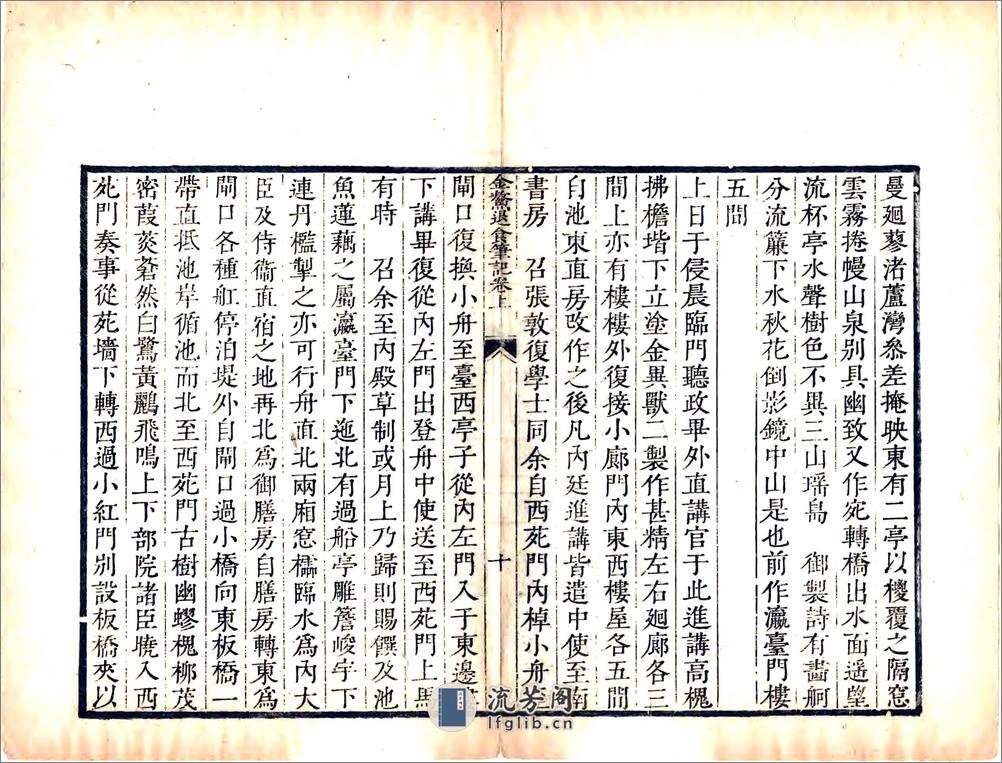 曼廻蓼渚蘆灣參差掩映東有二亭以椶覆之隔窓
雲霧捲幔山泉别具幽致又作宛轉橋出水面遥望
流杯亭水聲樹色不異三山瑶島 御製詩有畵舸
分流簾下水秋花倒影鏡中山是也前作瀛臺門樓
五間
上日于侵晨臨門聽政畢外直講官于此進講高槐
拂檐堦下立塗金異獸二製作甚精左右廻廊各三
間上亦有樓樓外復接小廊門内東西樓屋各五間
自池東直房改作之後凡内廷進講皆遣中使至南
書房 召張敦復學士同余自西苑門内棹小舟
金鰲退食筆記卷上
十
閘口復換小舟至臺西亭子從内左門入于東邊
下講畢復從内左門出登舟中使送至西苑門上馬
有時 召余至内殿草制或月上乃歸則賜饌及池
魚蓮藕之屬瀛臺門下迤北有過船亭雕簷峻宇下
連丹檻掣之亦可行舟直北兩厢窓櫺臨水爲内大
臣及侍衞直宿之地再北爲御膳房自膳房轉東爲
閘口各種舡停泊堤外自閘口過小橋向東板橋一
帶直抵池岸循池而北至西苑門古樹幽蟉槐栁茂
密葭菼蒼然白鷺黃鸝飛鳴上下部院諸臣曉入西
苑門奏事從苑墻下轉西過小紅門别設板橋夾以
流芳阁
lfglib.cn